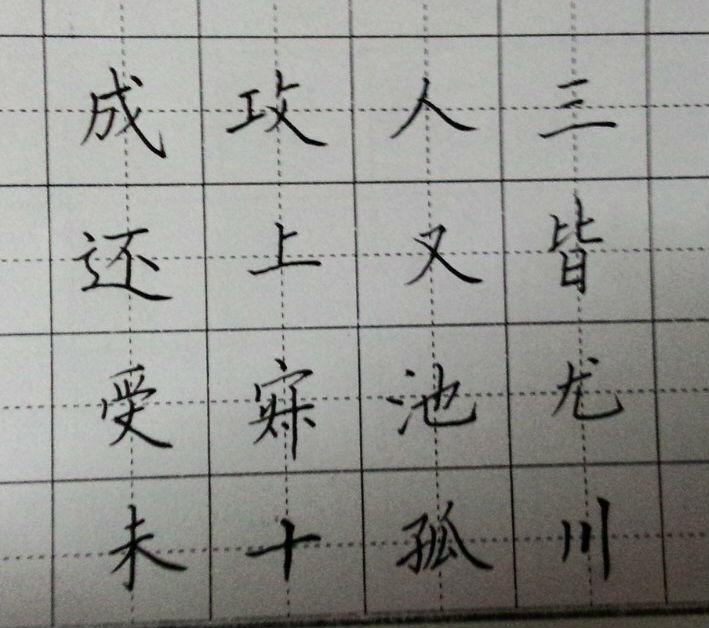 成 攻 人 三
还 上 又 皆
受 池 尤
未 十 孤 川